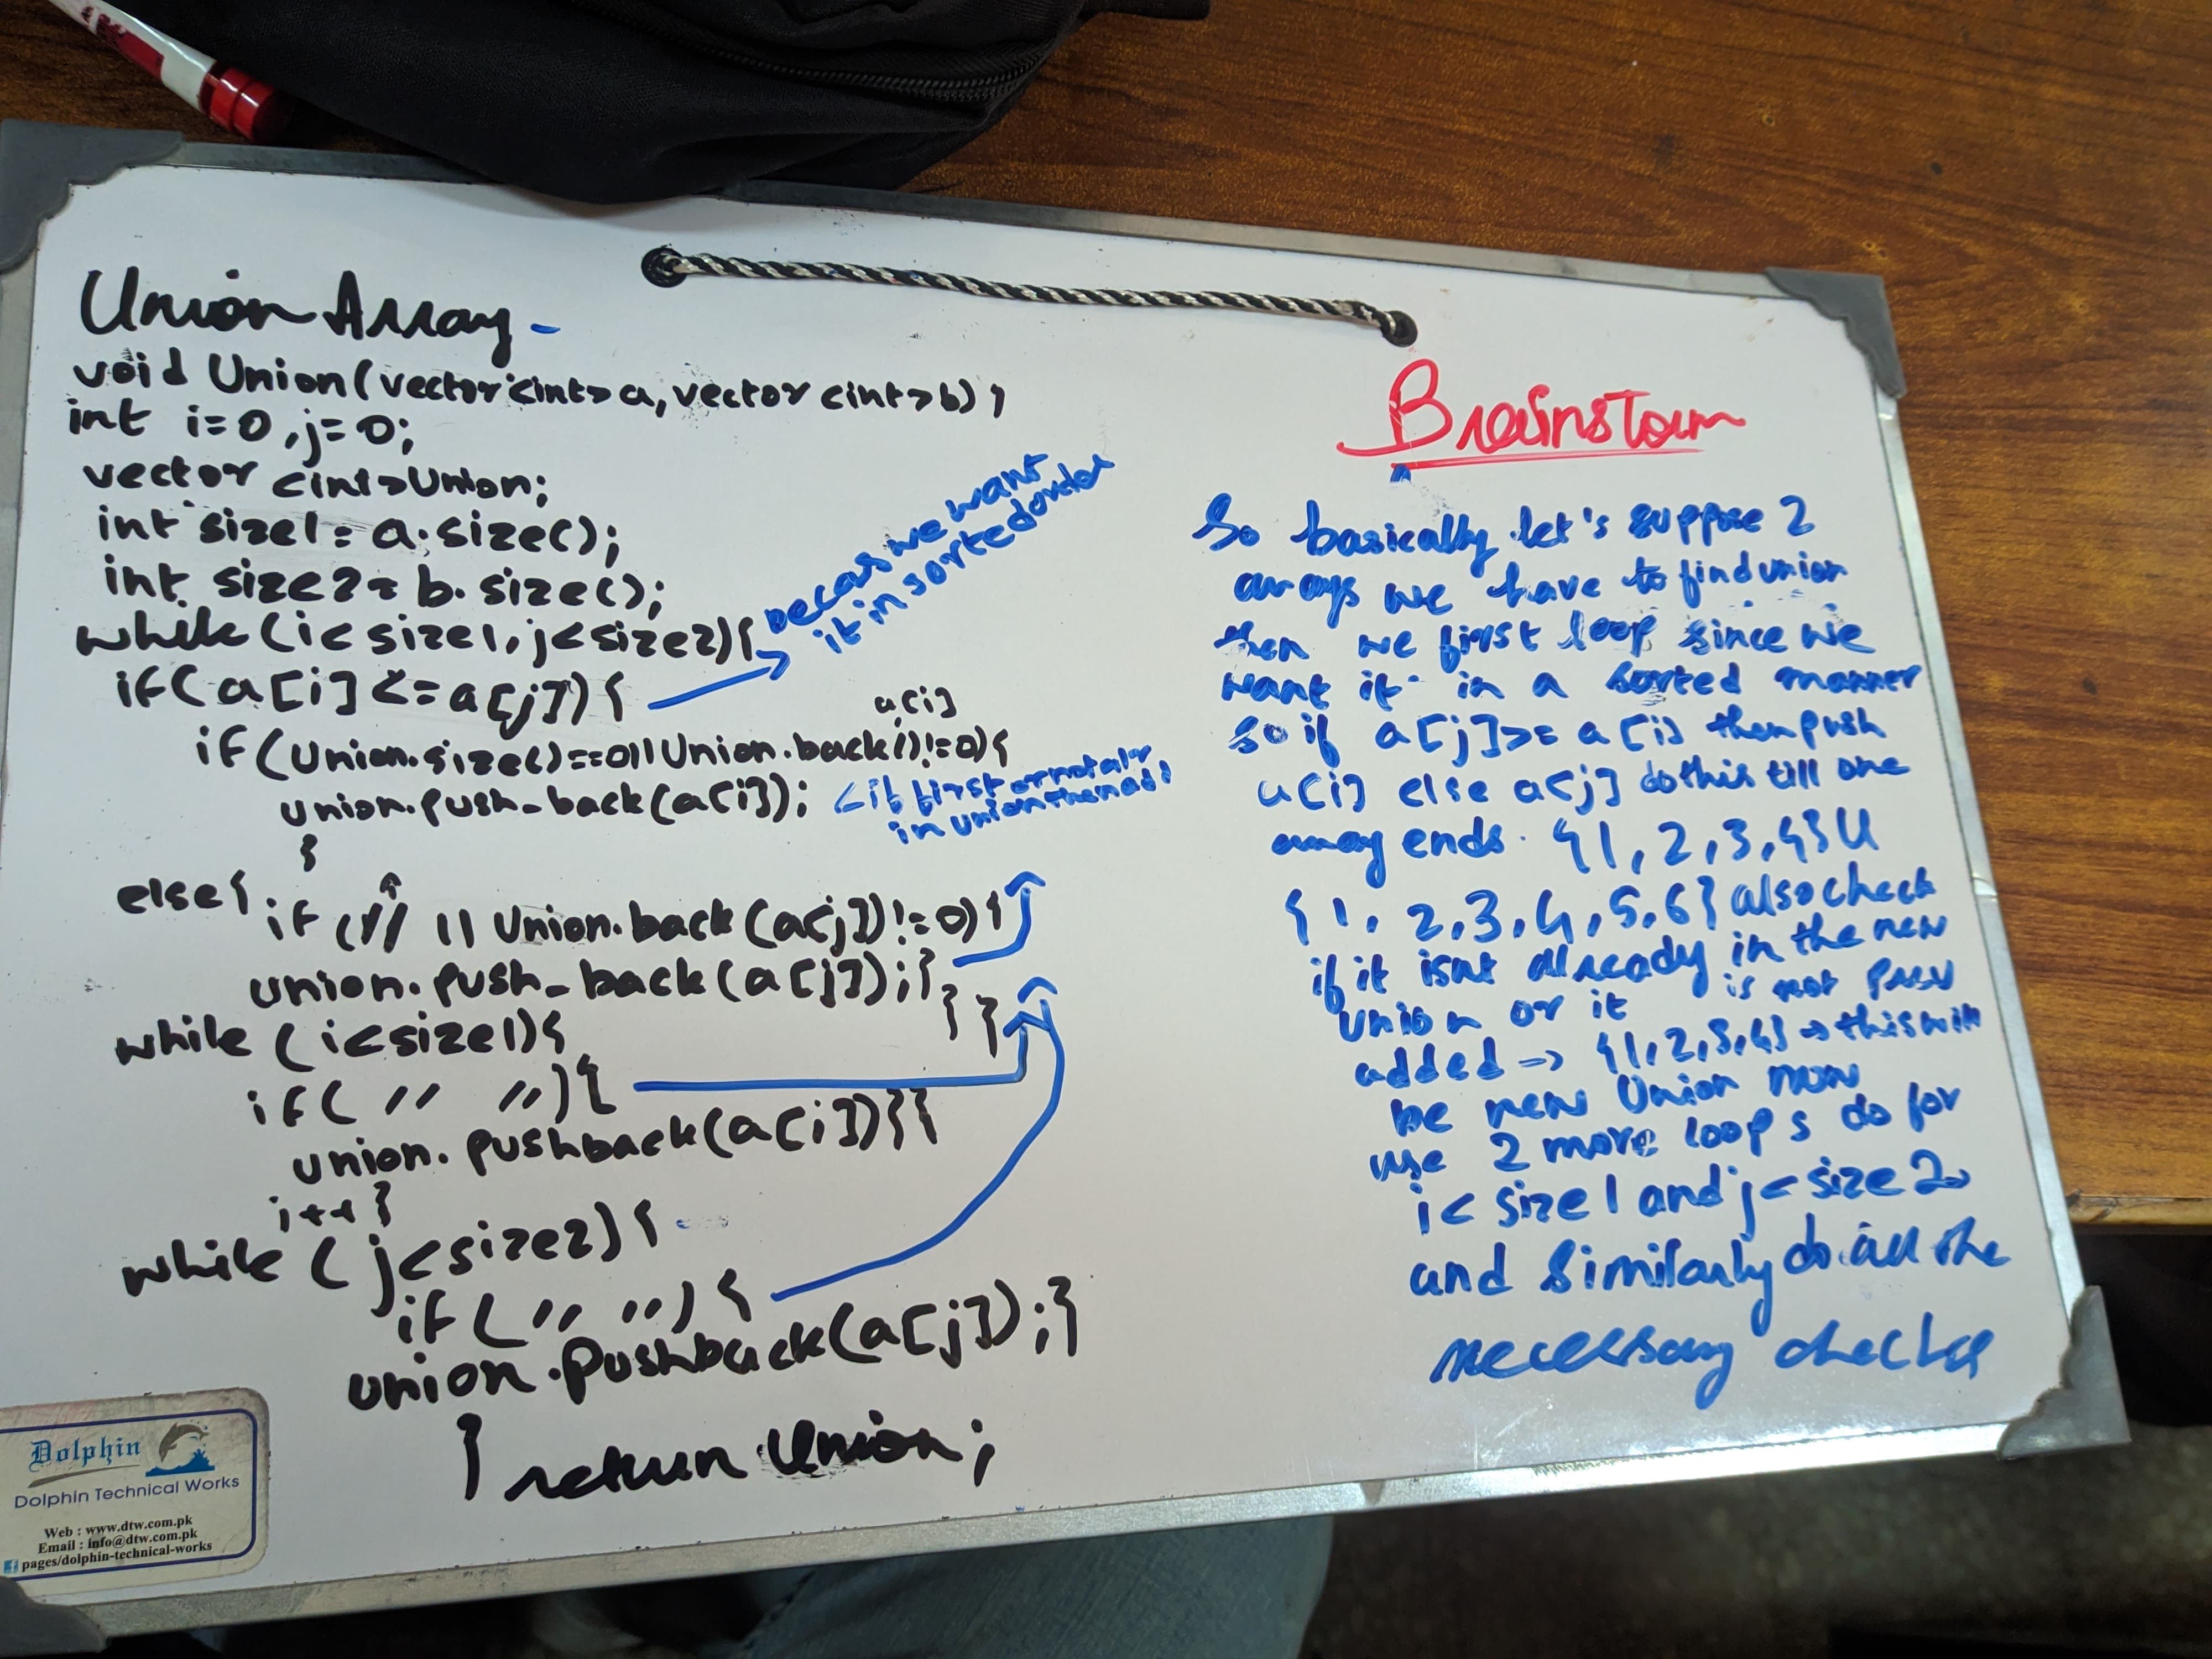 Union Array -
void Union(vector<int>a, vector<int>b) {
int i=0, j=0;
vector <int>Union;
int size1= a.size();
int size2= b.size();
while (i< size1, j<size2){
if( a[i] <= a[j]) {
becaus we want
it in sorted order
a[i]
if (Union.size()==0|| Union.back()!=0){
union.push_back(a[i]);
<if first or not alr
in union then add
}
else{
if (// || Union.back (a[j])!=0){
union.push_back(a[j]);}
}}
while ( i<size1){
if( // //){
union. pushback(a[i])}}
i++}
while ( j<size2){
if( // //) {
union.pushback(a[j]);}
} return Union;
Brainstorm
So basically let's suppose 2
arrays we have to find union
then we first loop since we
want it in a sorted manner
so if a[j]>= a[i] then push
a[i] else a[j] do this till one
array ends. {1, 2, 3, 4} U
{1, 2, 3, 4, 5, 6} also check
if it isnt already in the new
union or it is not prev
added => {1, 2, 3, 4} → this will
be new Union now
use 2 more loops do for
i< size1 and j< size2
and similarly do all the
necessary checks
Dolphin
Dolphin Technical Works
Web : www.dtw.com.pk
Email : info@dtw.com.pk
pages/dolphin-technical-works